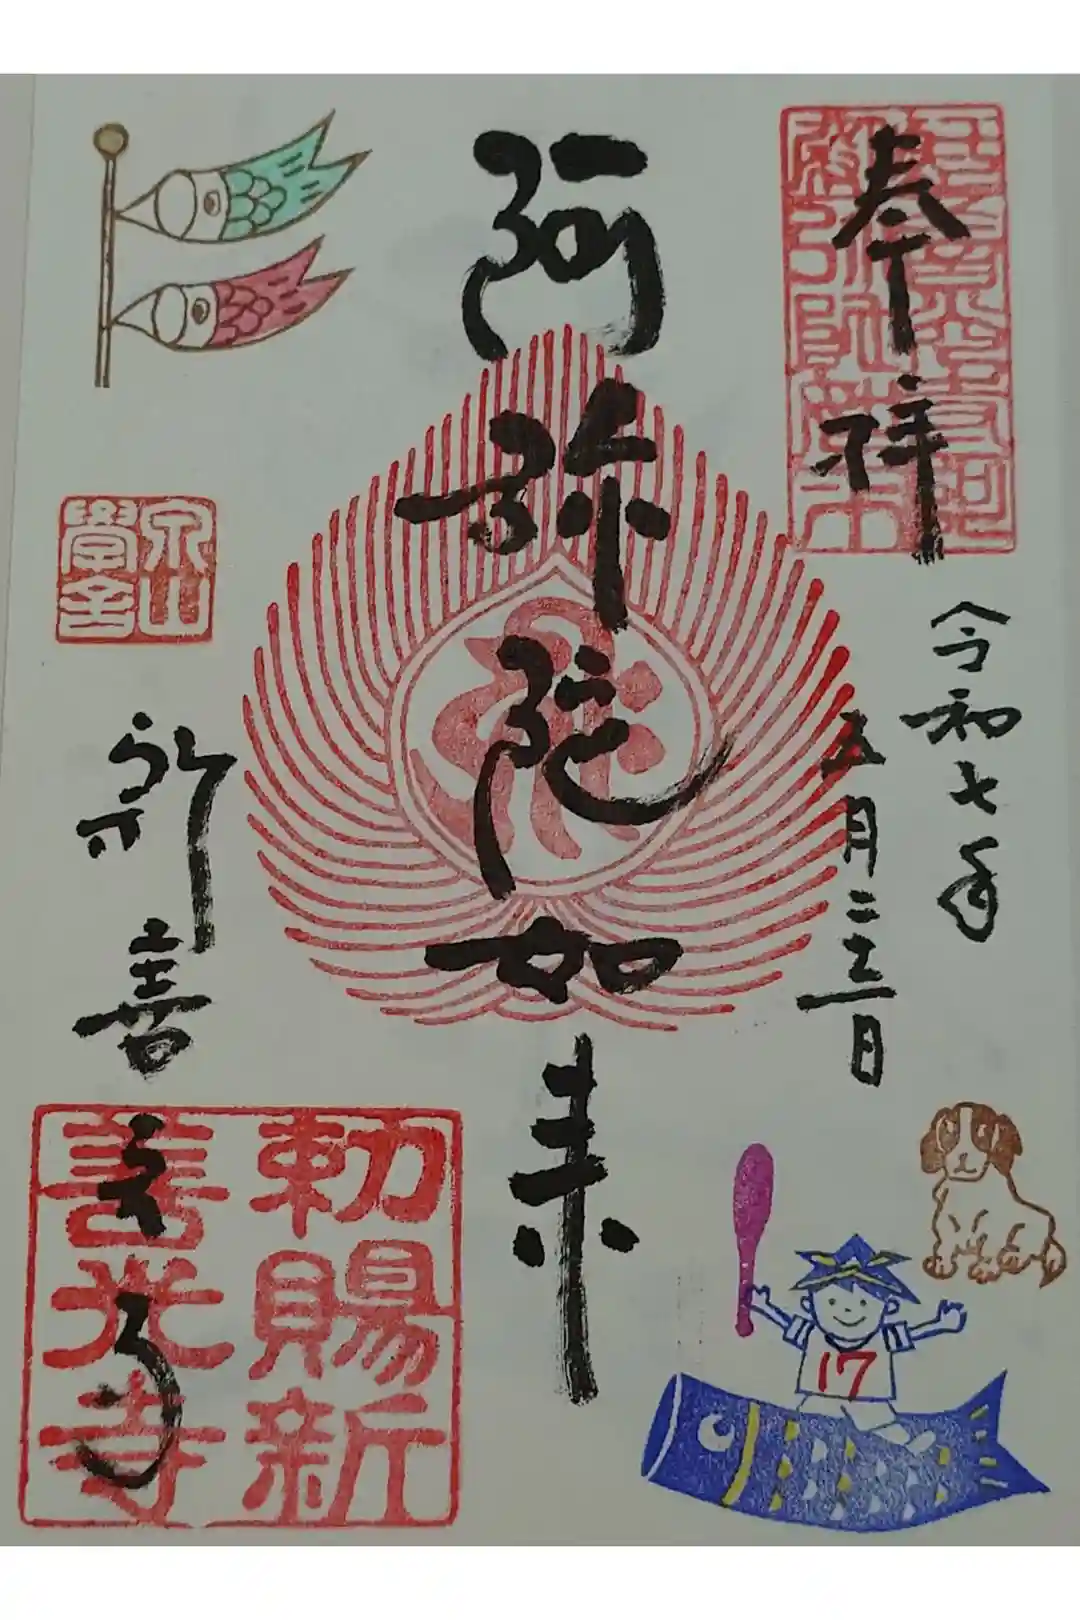 奉拝
令和七年
五月二十三日
阿弥陀如来
新善光寺
泉山
學舎
勅賜新
善光寺
17